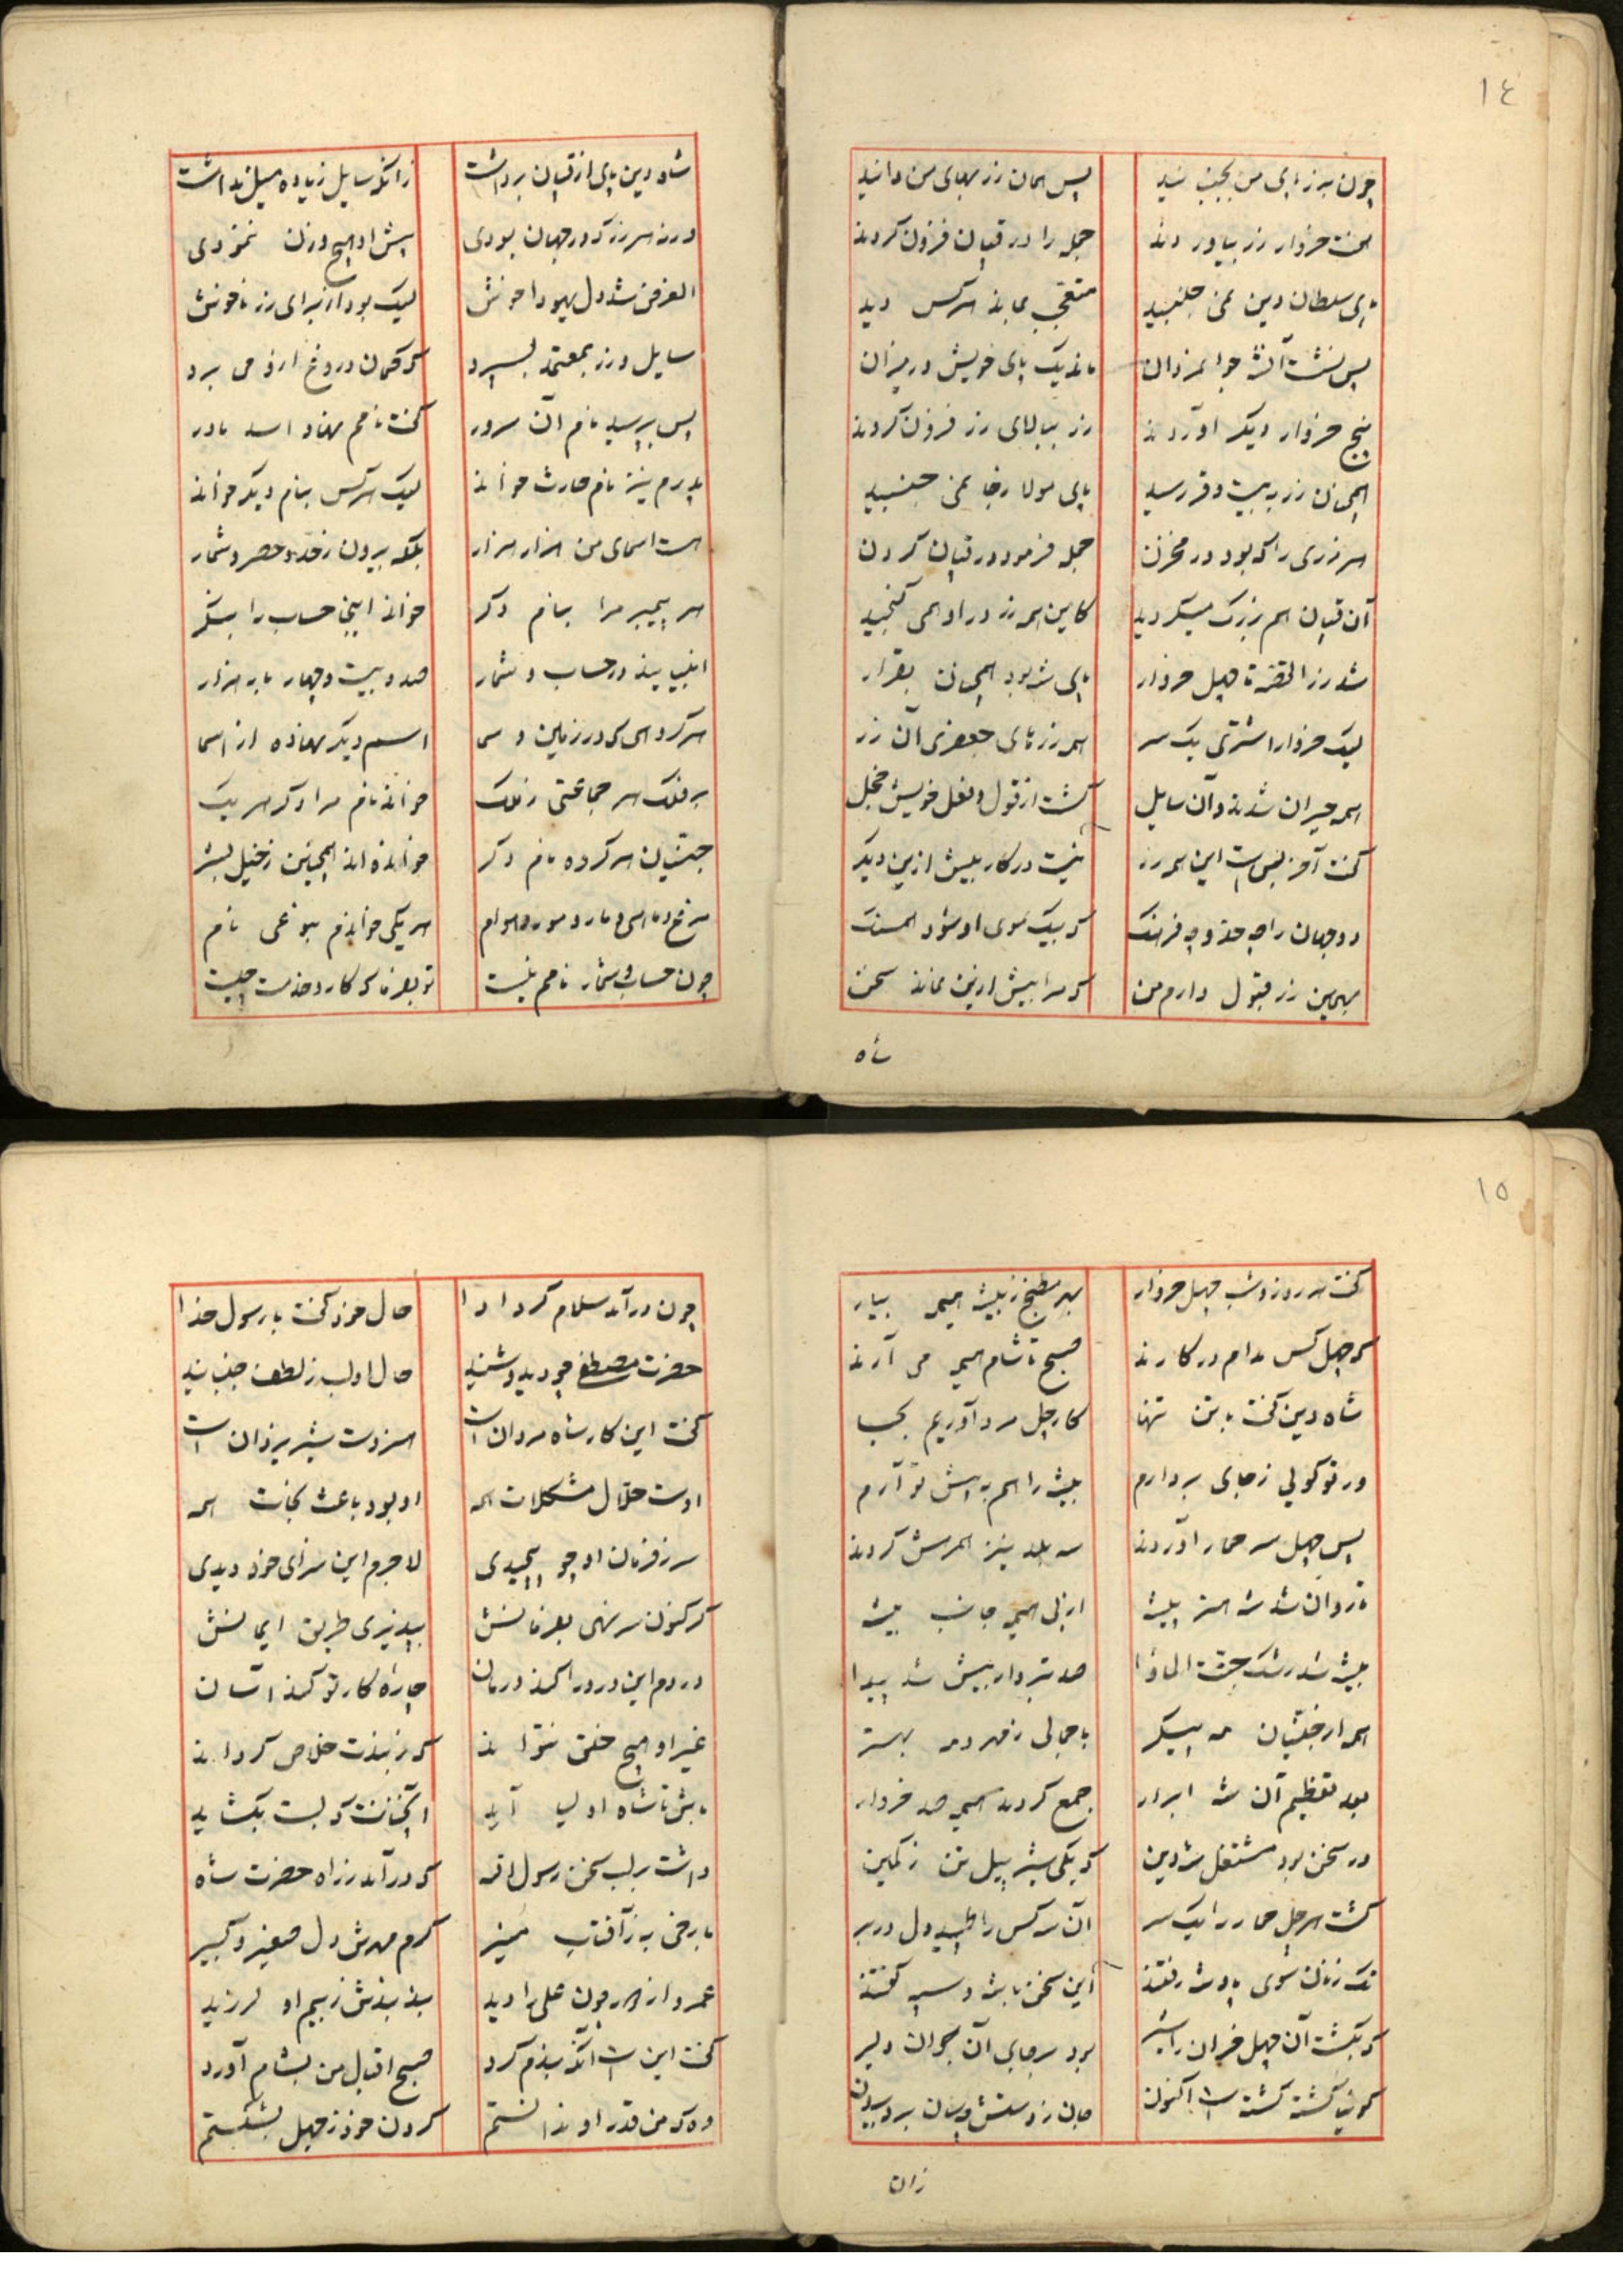 ١٤
چون به زر پای من بجنبانید پس همان زر بهای من دانید
هفت خروار زر بیاوردند جمله را در قپان فزون کردند
پای سلطان دین نمی جنبید متعجب بماند هر کس دید
پس نشست آن شه جوانمردان ماند یک پای خویش در میزان
پنج خروار دیگر آوردند زر ببالای زر فزون کردند
همچنان زر به بیست و فر رسید پای مولا ز جا نمی جنبید
هر زری را که بود در مخزن جمله فرمود در قپان کردن
آن قپان هم بزرگ میگردید کاین همه زر در او همی گنجید
شد زر القصه تا چهل خروار پای شه بود همچنان بقرار
لیک خروار اشتری یک سر همه زرهای جعفری آن زر
همه حیران شدند و آن سایل گشت از قول و فعل خویش خجل
گفت آخر بس است این همه زر نیست در کار بیش ازین دیگر
دو جهان را چه قدر و چه فرهنگ که بیک موی او شود همسنگ
بهمین زر قبول دارم من که مرا بیش ازین نماند سخن
شاه
شاه دین پای از قپان برداشت زانکه سایل زیاده میل نداشت
ورنه هر زر که در جهان بودی پیش او هیچ وزن ننمودی
الغرض شد دل یهودا خوش لیک بود از برای زر ناخوش
سایل و زر بمعتمد بسپرد که گمان دروغ ازو می برد
پس بپرسید نام آن سرور گفت نامم نهاد اسد مادر
پدرم نیز نام حارث خواند لیک هر کس بنام دیگر خواند
هست اسمای من هزار هزار بلکه بیرون ز حد و حصر و شمار
هر پیمبر مرا بنام دگر خواند اینجا حساب را بنگر
انبیایند در حساب و شمار صد و بیست و چهار باره هزار
هر گروهی که در زمین و سما اسم دیگر نهاده از اسما
بر فلک هر جماعتی ز ملک خواند نام مرا دگر هر یک
جنیان هر گروه نام دگر خوانده اند همچنین ز خیل بشر
مرغ و ماهی و مار و مور و هوام هر یکی خواندم بنوعی نام
چون حساب و شمار نامم نیست تو بفرما که کار و خدمت چیست
١٥
گفت هر روز و شب چهل خروار بهر مطبخ ز بیشه هیمه بیار
که چهل کس مدام در کارند صبح تا شام هیمه می آرند
شاه دین گفت با تن تنها کار چل مرد آوریم بجا
ور تو گویی ز جای بردارم بیشه را هم به پیش تو آرم
پس چهل سر حمار آوردند سه بلد نیز همرهش کردند
تا روان شد شه هنر پیشه از پی هیمه جانب بیشه
بیشه شد رشک جنت الماوا صد تبردار بیش شد پیدا
همه از جنیان مه پیکر با جمالی ز مهر و مه بهتر
بعد تعظیم آن شه ابرار جمع کردند هیمه صد خروار
در سخن بود مشتغل شه دین که یکی شیر پیل تن ز کمین
کشت هر چل حمار را یک سر آن سه کس را طپید دل در بر
تک زنان سوی پادشه رفتند این سخن با شه و سپه گفتند
که بکشت آن چهل خران را شیر بود بر جای آن جوان دلیر
گوئیا گشته کشته است اکنون جان ز دستش چسان برد بیرون
زان
چون در آمد سلام کرد او را حال خود گفت با رسول خدا
حضرت مصطفی چو دید و شنید حال او لب ز لطف جنبانید
گفت این کار شاه مردان است هنر دست شیر یزدان است
اوست حلال مشکلات همه او بود باعث نجات همه
سر ز فرمان او چو پیچیدی لاجرم این سزای خود دیدی
گر کنون سر نهی بفرمانش بپذیری طریق ایمانش
در دم این درد را کند درمان چاره کار تو کند آسان
غیر او هیچ خلق نتواند که ز بندت خلاص گرداند
باش تا شاه اولیا آید آنچنانت که بست بگشاید
داشت بر لب سخن رسول اله که در آمد ز راه حضرت شاه
با رخی به ز آفتاب منیر گرم مهرش دل صغیر و کبیر
عمرو از در چون علی را دید بند بندش ز بیم او لرزید
گفت این است آنکه بندم کرد صبح اقبال من بشام آورد
وه که من قدر او ندانستم گردن خود ز جهل بشکستم